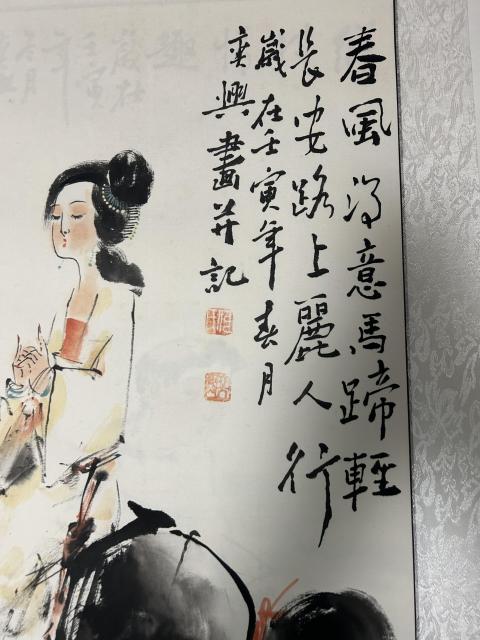 春風得意馬蹄輕
長安路上麗人行
歲在壬寅年春月
奕興畫并記